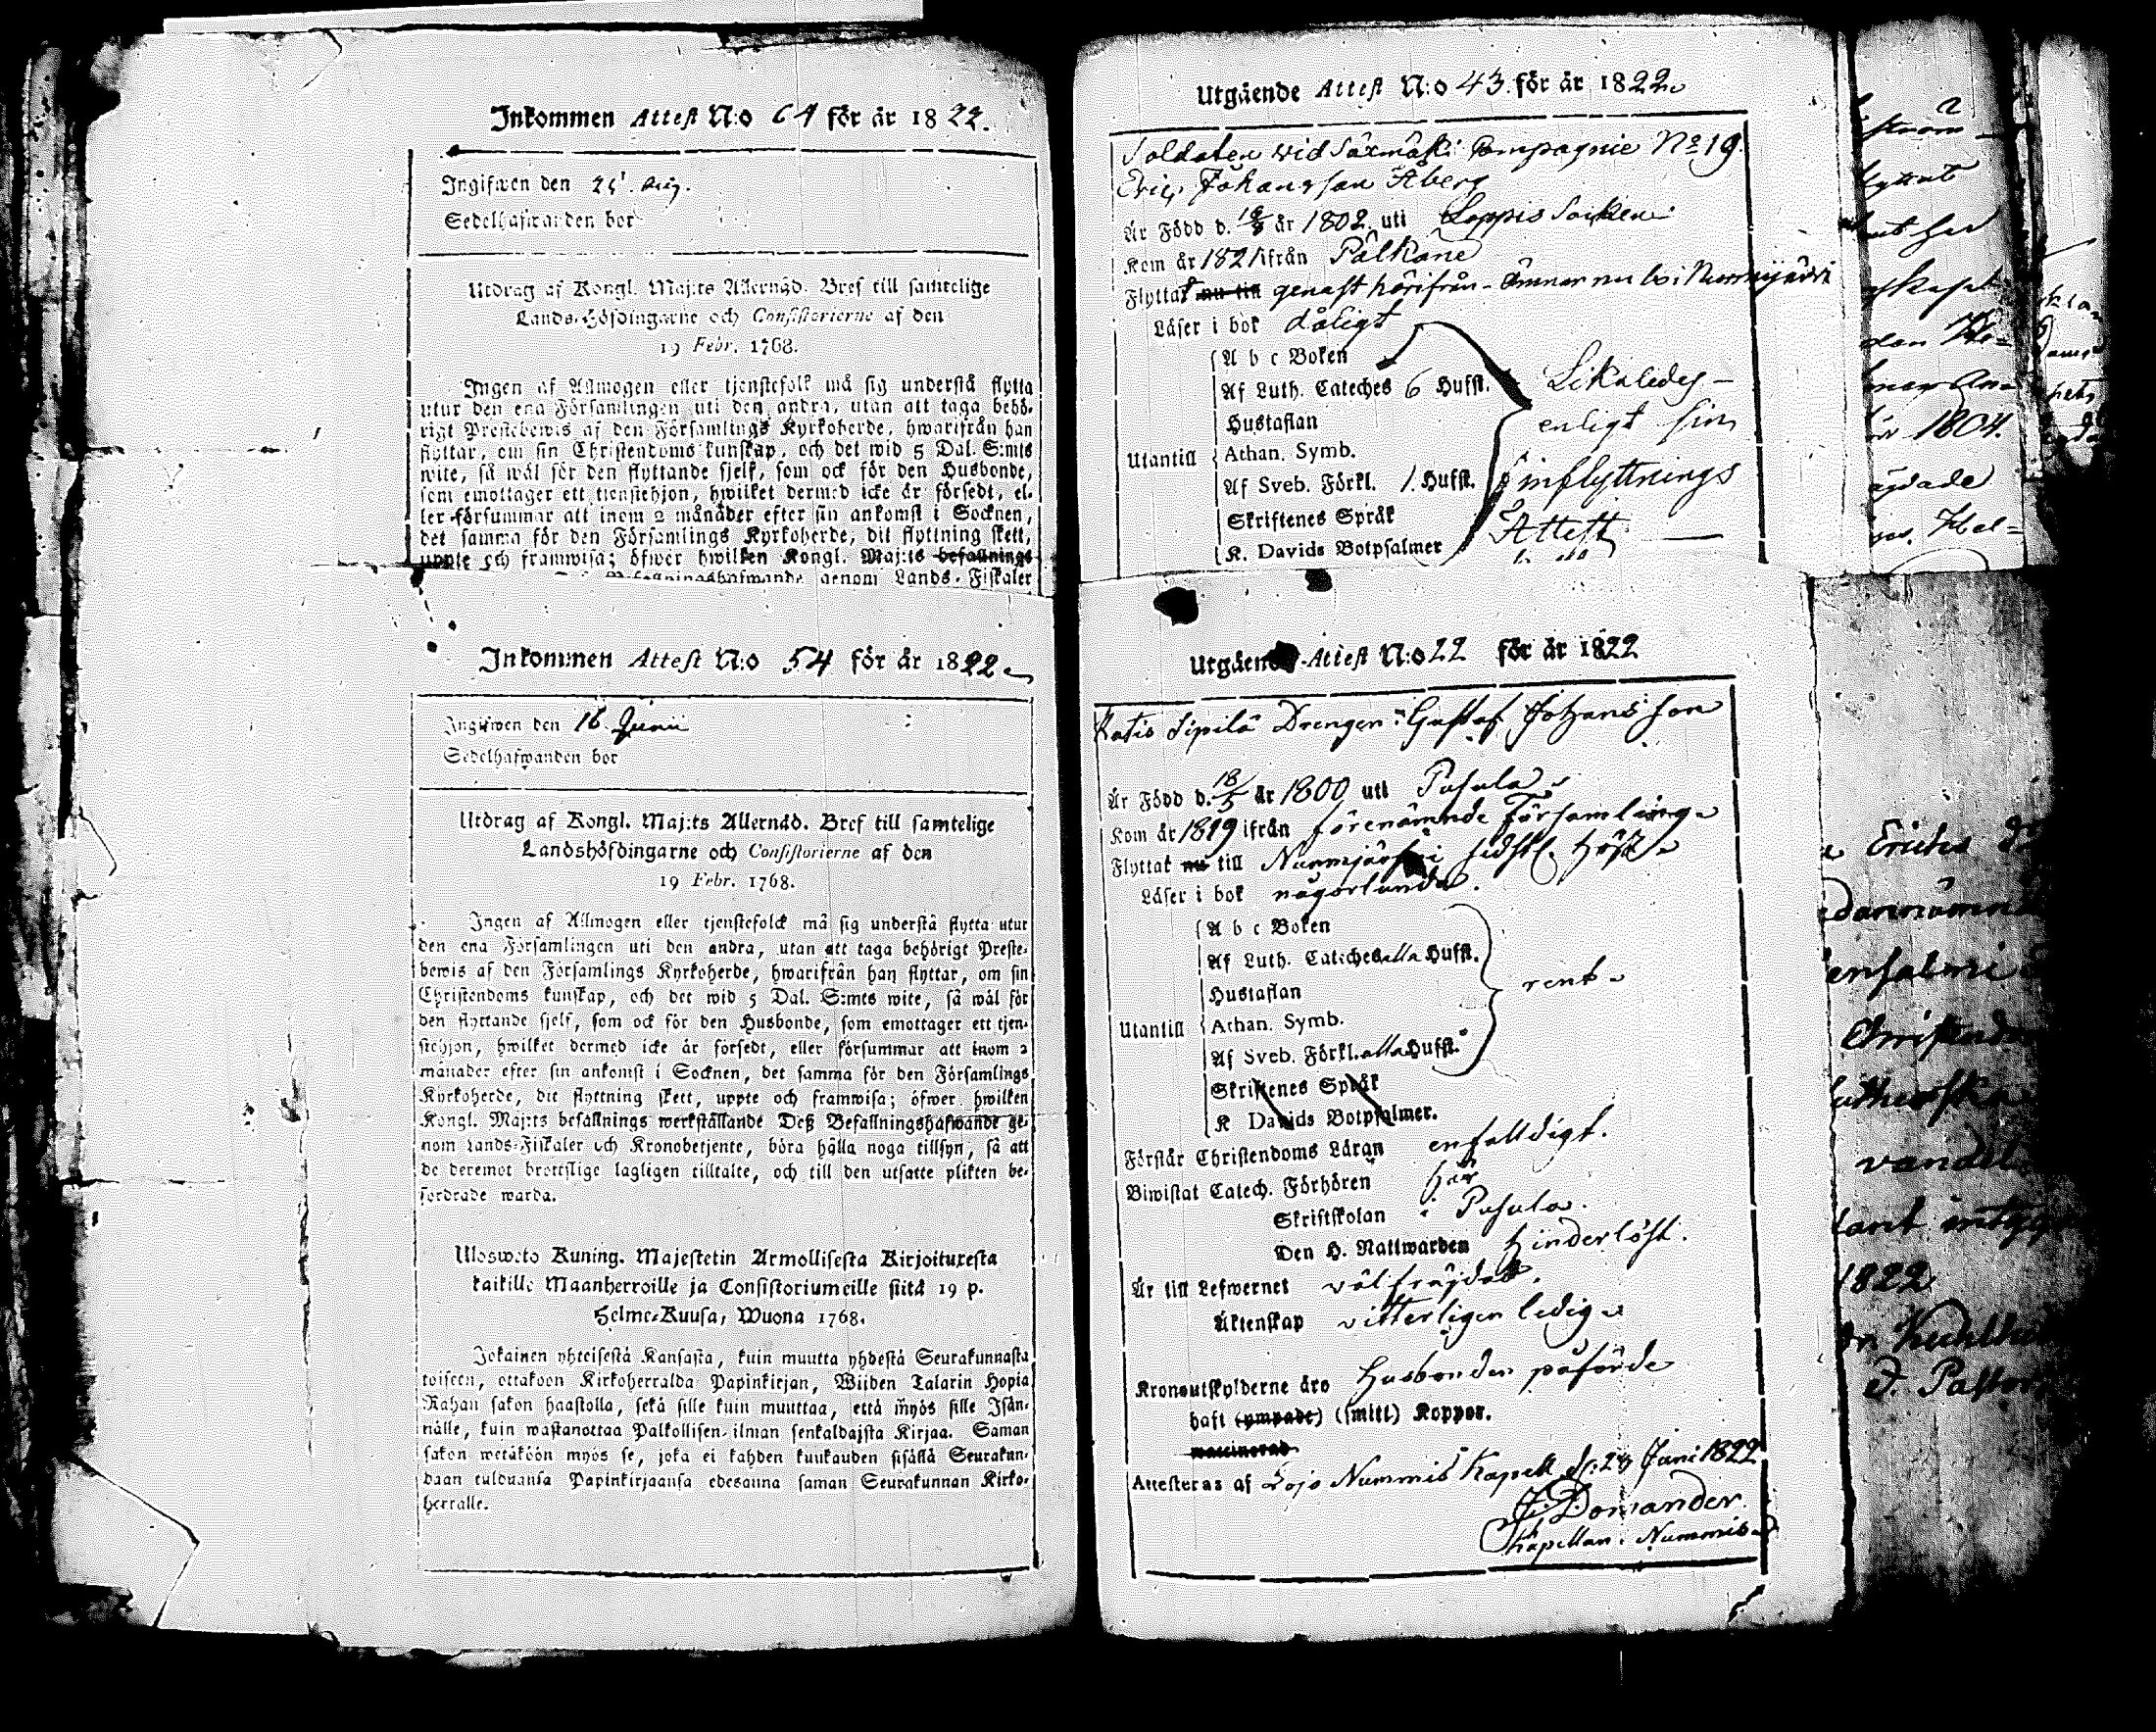 Inkommen Attest N:o 64 för år 1822.
Ingifwen den 25 Aug.
Sedelhafwanden bor
Utdrag af Kongl. Maj:ts Allernåd. Bref till samtelige
Lands-Höfdingarne och Consistorierne af den
19 Febr. 1768.
Ingen af Allmogen eller tjenstefolk må sig understå flytta
utur den ena Församlingen uti den andra, utan att taga behö-
rigt Prestebewis af den Församlings Kyrkoherde, hwarifrån han
flyttar, om sin Christendoms kunskap, och det wid 5 Dal. S:mts
wite, så wäl för den flyttande sjelf, som ock för den Husbonde,
som emottager ett tjenstehjon, hwilket dermed icke är försedt, el-
ler försummar att inom 2 månader efter sin ankomst i Socknen,
det samma för den Församlings Kyrkoherde, dit flyttning skett,
uppte och framwisa; öfwer hwilken Kongl. Maj:ts befallnings
Befallningshafwande genom Lands-Fiskaler
Inkommen Attest N:o 54 för år 1822.
Ingifwen den 16 Junii
Sedelhafwanden bor
Utdrag af Kongl. Maj:ts Allernåd. Bref till samtelige
Landshöfdingarne och Consistorierne af den
19 Febr. 1768.
Ingen af Allmogen eller tjenstefolck må sig understå flytta utur
den ena Församlingen uti den andra, utan att taga behörigt Preste-
bewis af den Församlings Kyrkoherde, hwarifrån han flyttar, om sin
Christendoms kunskap, och det wid 5 Dal. S:mts wite, så wäl för
den flyttande sjelf, som ock för den Husbonde, som emottager ett tjen-
stehjon, hwilket dermed icke är försedt, eller försummar att inom 2
månader efter sin ankomst i Socknen, det samma för den Församlings
Kyrkoherde, dit flyttning skett, uppte och framwisa; öfwer hwilken
Kongl. Maj:ts befallnings werkställande Deß Befallningshafwande ge-
nom Lands-Fiskaler och Kronobetjente, böra hålla noga tillsyn, så att
de deremot brottslige lagligen tilltalte, och till den utsatte plikten be-
fordrade warda.
Ulosweto Kuning. Majestetin Armollisesta Kirjoituxesta
kaikille Maanherroille ja Consistoriumeille siitä 19 p.
Helme-Kuusa, Wuona 1768.
Jokainen yhteisestä Kansasta, kuin muutta yhdestä Seurakunnasta
toiseen, ottakoon Kirkoherralda Papinkirjan, Wijden Talarin Hopia
Rahan sakon haastolla, sekä sille kuin muuttaa, että myös sille Isän-
nälle, kuin wastanottaa Palkollisen ilman senkaldajsta Kirjaa. Saman
sakon wetäköön myös se, joka ei kahden kuukauden sisällä Seurakun-
daan tulduansa Papinkirjaansa edesanna saman Seurakunnan Kirko-
herralle.
Utgående Attest N:o 43. för år 1822.
Soldaten wid Säxmäki Compagnie No 19.
Eric Johansson Åberg
Är Född d. 19/8 år 1802. uti Loppis Socken
Kom år 1821 ifrån Pälkäne
Flyttat nu till genast härifrån - Ämnar nu bo i Nurmijärvi
Läser i bok dåligt
A b c Boken
Af Luth. Cateches 6 Hufst.
Hustaflan
Utantill Athan. Symb.
Af Sveb. Förkl. 1. Hufst.
Skriftenes Språk
K. Davids Botpsalmer
Likaledes
enligt sin
inflyttnings
Attest
Utgående Attest N:o 22 för år 1822
Ratis Sipilä Drengen Gustaf Johansson
Är Född d. 18/5 år 1800 uti Pusula
Kom år 1819 ifrån förenämnde Församling
Flyttat nu till Nurmijärfvi sidstl. höst
Läser i bok någorlunda.
A b c Boken
Af Luth. Cateches alla Hufst.
Hustaflan
Utantill Athan. Symb.
Af Sveb. Förkl. alla Hufst.
Skriftenes Språk
K Davids Botpsalmer.
rent
Förstår Christendoms Läran enfalldigt.
Biwistat Catech. Förhören här
Skriftskolan i Pusula.
Den H. Nattwarden hinderlöst.
Är till Lefwernet välfräjdad.
Äktenskap vitterligen ledig
Kronoutskylderne äro Husbonden påförde
haft (ympade) (smitt) Koppor.
vaccinerad
Attesteras af Lojo Nummis Kapell d. 29 Juni 1822
J. Domander.
Kapellan i Nummis
1804.
Ericks
vandel
1822